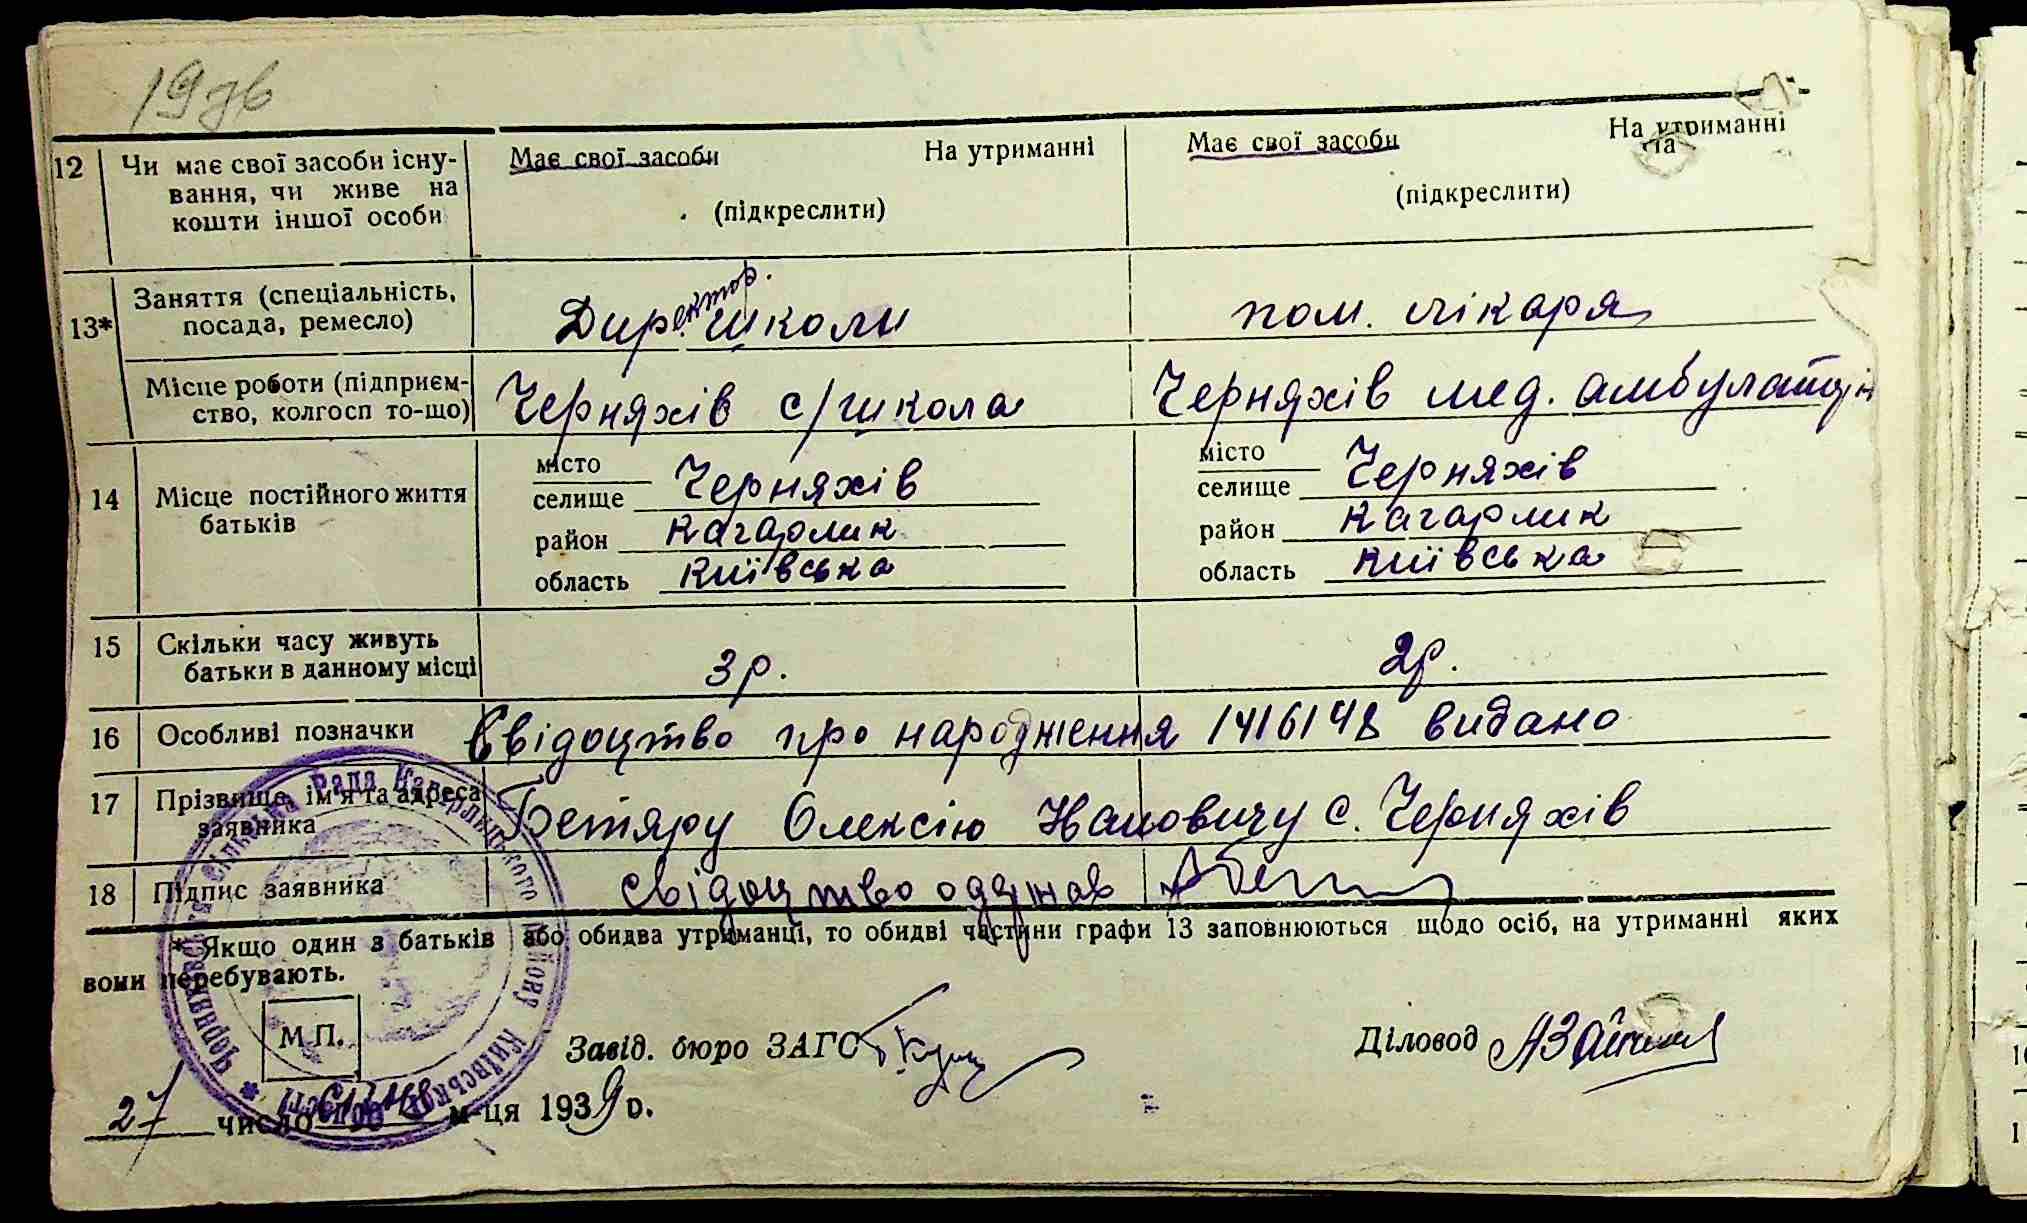 19зв
12 Чи має свої засоби існу- Має свої засоби На утриманні Має свої засоби На утриманні
вання, чи живе на
кошти іншої особи (підкреслити) (підкреслити)
13* Заняття (спеціальність, посада, ремесло) Директор. школи пом. лікаря
Місце роботи (підприєм-
ство, колгосп то-що) Черняхів с/школа Черняхів мед. амбулаторія
14 Місце постійного життя батьків
місто селище Черняхів місто селище Черняхів
район Кагарлик район Кагарлик
область Київська область Київська
15 Скільки часу живуть
батьки в данному місці 3 р. 2 р.
16 Особливі позначки Свідоцтво про народження 1416148 видано
17 Прізвище, ім'я та адреса
заявника Бетяру Олексію Івановичу с. Черняхів
18 Підпис заявника свідоцтво одержав
* Якщо один з батьків або обидва утриманці, то обидві частини графи 13 заповнюються щодо осіб, на утриманні яких
вони перебувають.
М П.
Завід. бюро ЗАГС Діловод
27 число м-ця 1939 р.
Черняхівська Сільська Рада Кагарлицького Району Київської Області